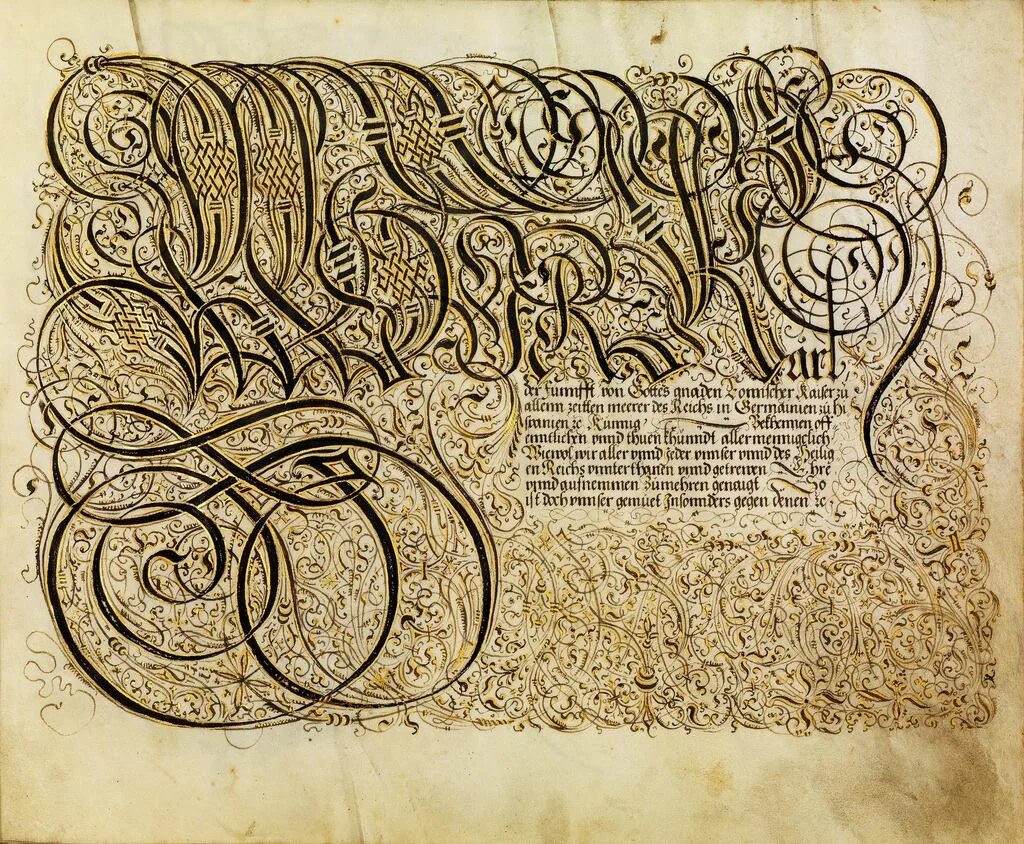 Wir Karl
der Fünnfft von Gottes gnaden Romischer Kaiser zu
allenn zeitten meerer des Reichs in Germainien zů hi
spanien ꝛc Künnig / Bekhennen off
enntlichen vnnd thuen khunndt allermennigelich
Wiewol wir aller vnnd jeder vnnser vnnd des Heilig
en Reichs vnnterthanen vnnd getrewen Ehre
vnnd aufnemmen zůmehren genaigt So
ist doch vnnser gemüet Insonnders gegen denen ꝛc